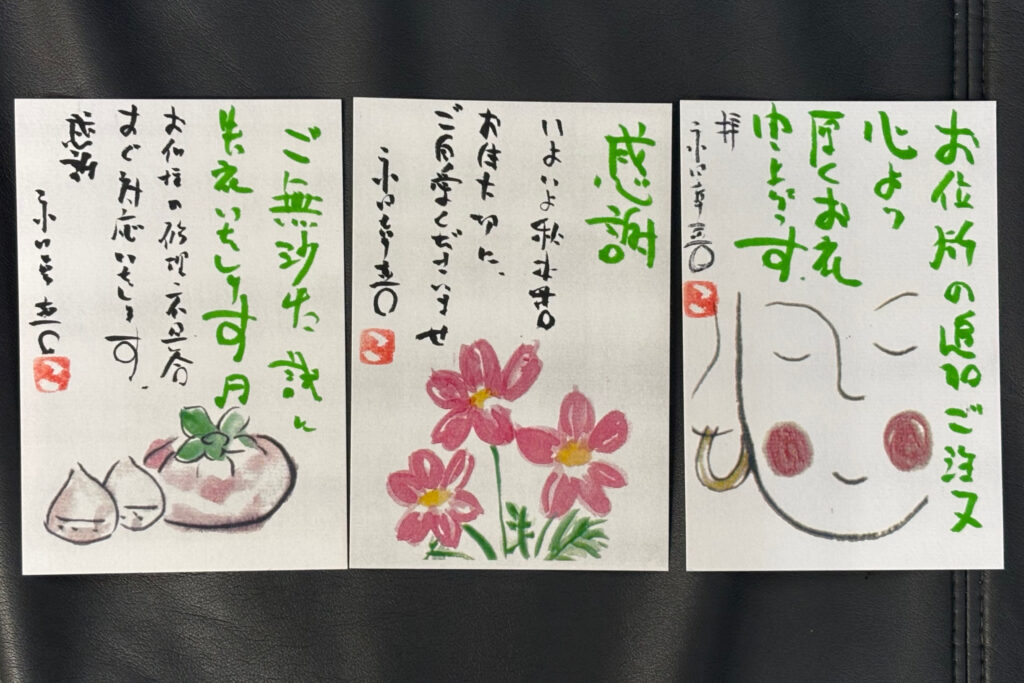 ご無沙た 誠に
失礼いたします
お仏壇の修理・不具合
すぐ対応いたします。
感謝
感謝
いよいよ秋本番
お体大切に、
ご自愛くださいませ
お位牌の追加ご注文
心より
厚くお礼
申し上げます
拝